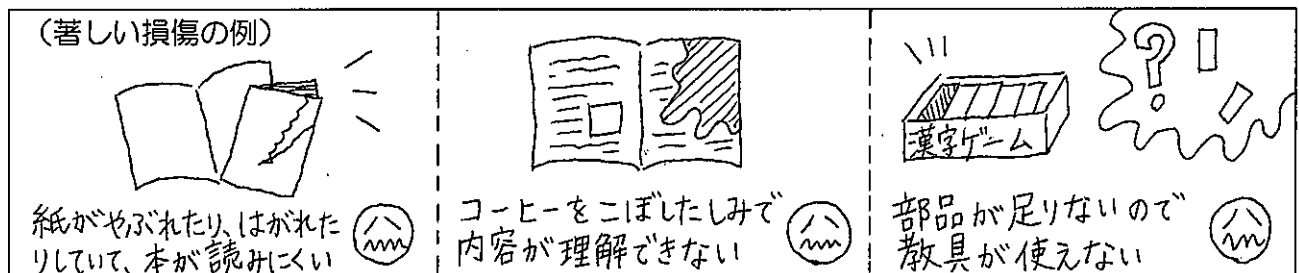 (著しい損傷の例)
紙がやぶれたり、はがれた
りしていて、本が読みにくい
コーヒーをこぼしたしみで
内容が理解できない
?
漢字ゲーム
部品が足りないので
教具が使えない